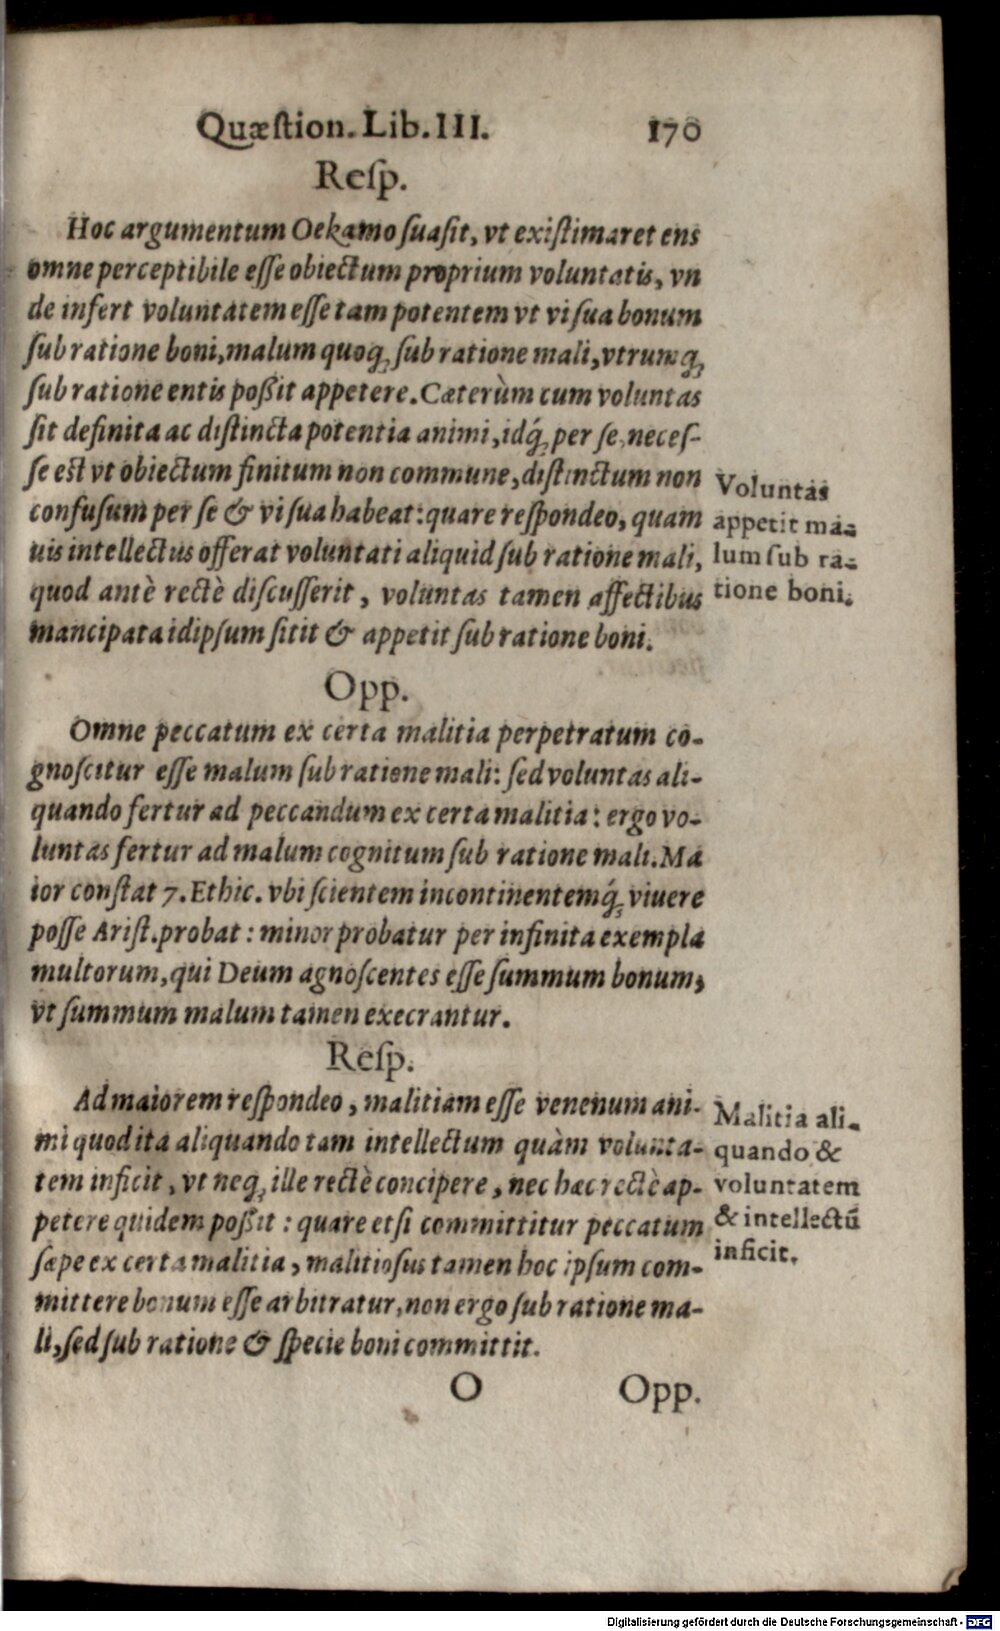 Quæſtion. Lib. III. 170
Reſp.
Hoc argumentum Oekamo ſuaſit, vt exiſtimaret ens
omne perceptibile eſſe obiectum proprium voluntatis, vn
de infert voluntatem eſſe tam potentem vt vi ſua bonum
ſub ratione boni, malum quoq; ſub ratione mali, vtrumq;
ſub ratione entis poßit appetere. Cæterùm cum voluntas
ſit definita ac diſtincta potentia animi, idq́; per ſe, neceſ-
ſe est vt obiectum finitum non commune, diſtinctum non
confuſum per ſe & vi ſua habeat: quare reſpondeo, quam
uis intellectus offerat voluntati aliquid ſub ratione mali,
quod antè rectè diſcuſſerit, voluntas tamen affectibus
mancipata idipſum ſitit & appetit ſub ratione boni.
Voluntas
appetit ma-
lum ſub ra-
tione boni.
Opp.
Omne peccatum ex certa malitia perpetratum co-
gnoſcitur eſſe malum ſub ratione mali: ſed voluntas ali-
quando fertur ad peccandum ex certa malitia: ergo vo-
luntas fertur ad malum cognitum ſub ratione mali. Ma
ior conſtat 7. Ethic. vbi ſcientem incontinentemq́; viuere
poſſe Ariſt. probat: minor probatur per infinita exempla
multorum, qui Deum agnoſcentes eſſe ſummum bonum,
vt ſummum malum tamen execrantur.
Reſp.
Ad maiorem reſpondeo, malitiam eſſe venenum ani-
mi quod ita aliquando tam intellectum quàm volunta-
tem inficit, vt neq; ille rectè concipere, nec hæc rectè ap-
petere quidem poßit: quare etſi committitur peccatum
ſæpe ex certa malitia, malitioſus tamen hoc ipſum com-
mittere bonum eſſe arbitratur, non ergo ſub ratione ma-
li, ſed ſub ratione & ſpecie boni committit.
Malitia ali-
quando &
voluntatem
& intellectũ
inficit.
O Opp.
Digitalisierung gefördert durch die Deutsche Forschungsgemeinschaft - DFG